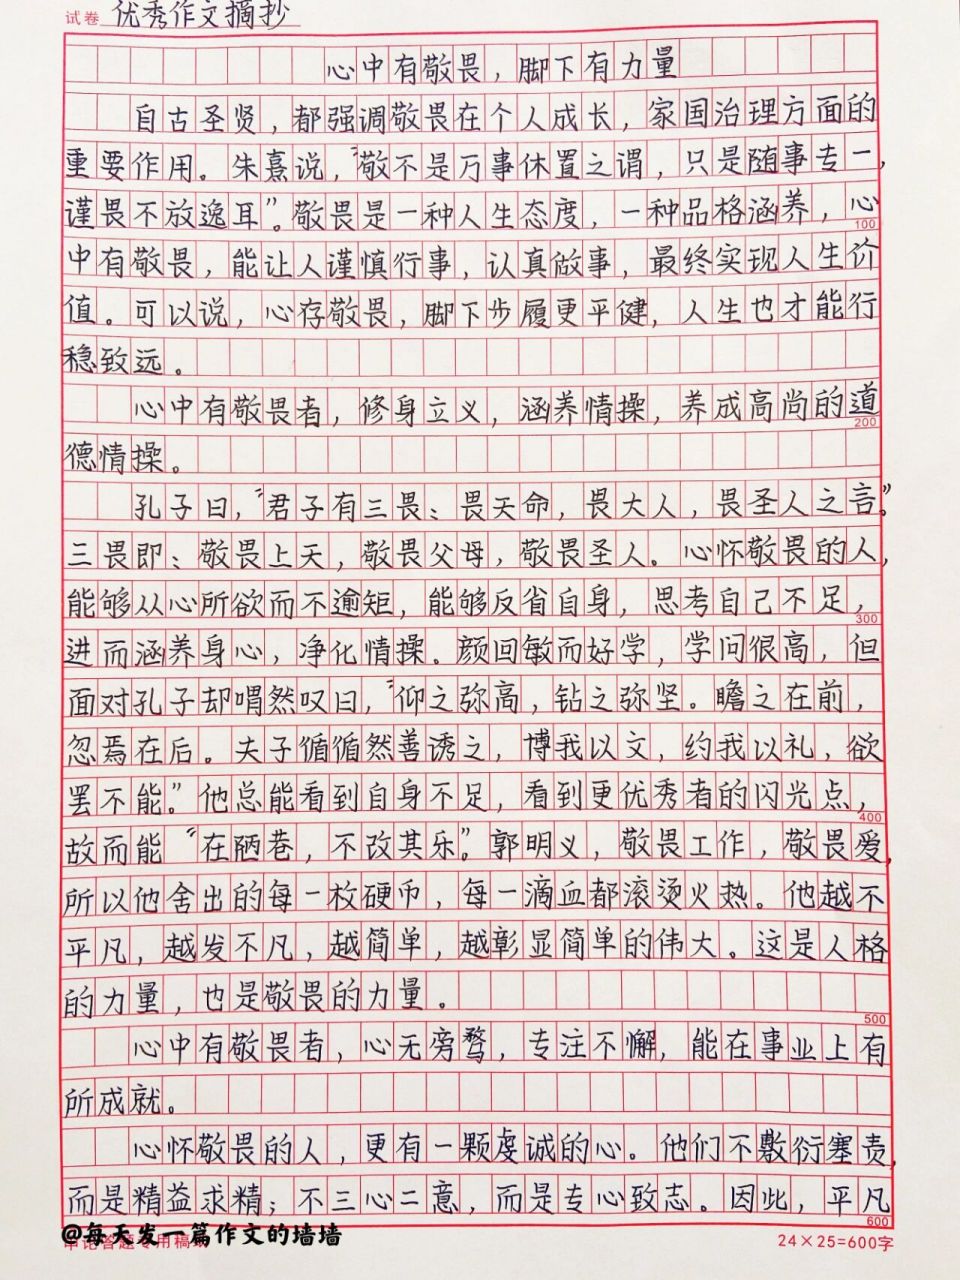 试卷 优秀作文摘抄
心中有敬畏，脚下有力量
自古圣贤，都强调敬畏在个人成长，家国治理方面的
重要作用。朱熹说，“敬不是万事休置之谓，只是随事专一，
谨畏不放逸耳”。敬畏是一种人生态度，一种品格涵养，心
100
中有敬畏，能让人谨慎行事，认真做事，最终实现人生价
值。可以说，心存敬畏，脚下步履更平健，人生也才能行
稳致远。
心中有敬畏者，修身立义，涵养情操，养成高尚的道
200
德情操。
孔子曰，“君子有三畏：畏天命，畏大人，畏圣人之言”。
三畏即：敬畏上天，敬畏父母，敬畏圣人。心怀敬畏的人，
能够从心所欲而不逾矩，能够反省自身，思考自己不足，
300
进而涵养身心，净化情操。颜回敏而好学，学问很高，但
面对孔子却喟然叹曰，“仰之弥高，钻之弥坚。瞻之在前，
忽焉在后。夫子循循然善诱之，博我以文，约我以礼，欲
罢不能。”他总能看到自身不足，看到更优秀者的闪光点，
400
故而能“在陋巷，不改其乐”。郭明义，敬畏工作，敬畏爱，
所以他舍出的每一枚硬币，每一滴血都滚烫火热。他越不
平凡，越发不凡，越简单，越彰显简单的伟大。这是人格
的力量，也是敬畏的力量。
500
心中有敬畏者，心无旁骛，专注不懈，能在事业上有
所成就。
心怀敬畏的人，更有一颗虔诚的心。他们不敷衍塞责，
而是精益求精；不三心二意，而是专心致志。因此，平凡
600
@每天发一篇作文的墙墙
申论答题专用稿纸
24×25=600字